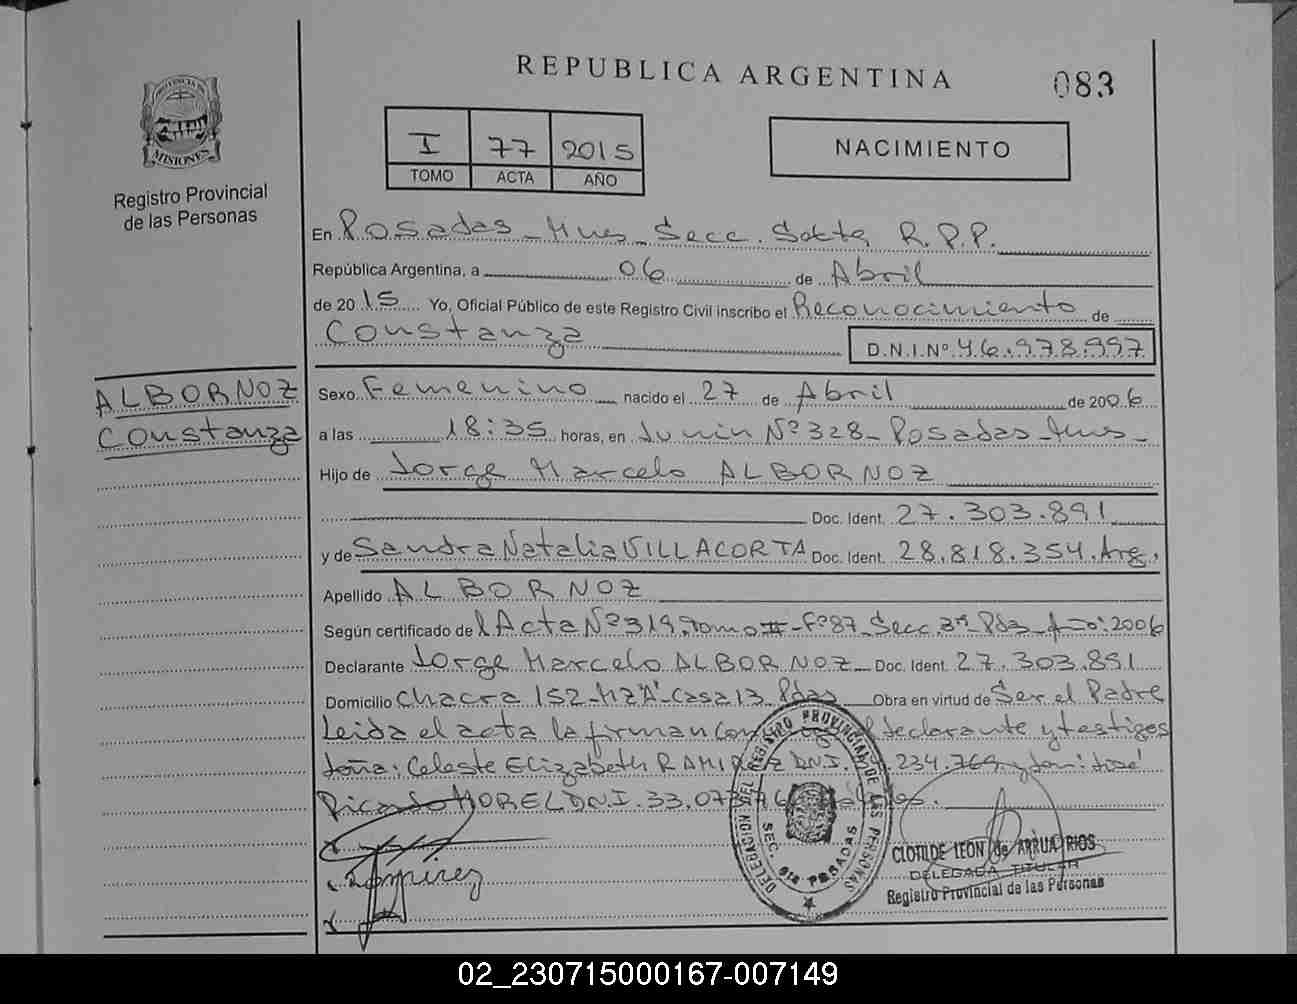 REPUBLICA ARGENTINA
083
PROVINCIA DE
MISIONES
Registro Provincial
de las Personas
I 77 2015
TOMO ACTA AÑO
NACIMIENTO
En Posadas - Mnes - Secc. Sexta R.P.P.
República Argentina, a 06 de Abril
de 2015 Yo, Oficial Público de este Registro Civil inscribo el Reconocimiento de
Constanza
D.N.I.Nº 46.978.997
ALBORNOZ
Constanza
Sexo Femenino nacido el 27 de Abril de 2006
a las 18:35 horas, en Junin Nº 328 - Posadas - Mnes -
Hijo de Jorge Marcelo ALBORNOZ
Doc. Ident. 27.303.891
y de Sandra Natalia VILLACORTA Doc. Ident. 28.818.354. Arg.
Apellido ALBORNOZ
Según certificado del Acta Nº 319. Tomo II - Fº 87 - Secc. 3ª - Pdas - Año: 2006
Declarante Jorge Marcelo ALBORNOZ - Doc. Ident. 27.303.891
Domicilio Chacra 152 - Mz "A" - Casa 13 Pdas Obra en virtud de Ser el Padre
Leida el acta la firman declarante y testigos
doña: Celeste Elizabeth RAMIREZ DNI. 234.769 y don: José
Ricardo MOREL DN.I. 33.07
Ramirez
DELEGACION DEL REGISTRO PROVINCIAL DE LAS PERSONAS
SEC. 6ta POSADAS
CLOTILDE LEON de ARRUA RIOS
DELEGADA TITULAR
Registro Provincial de las Personas
02_230715000167-007149